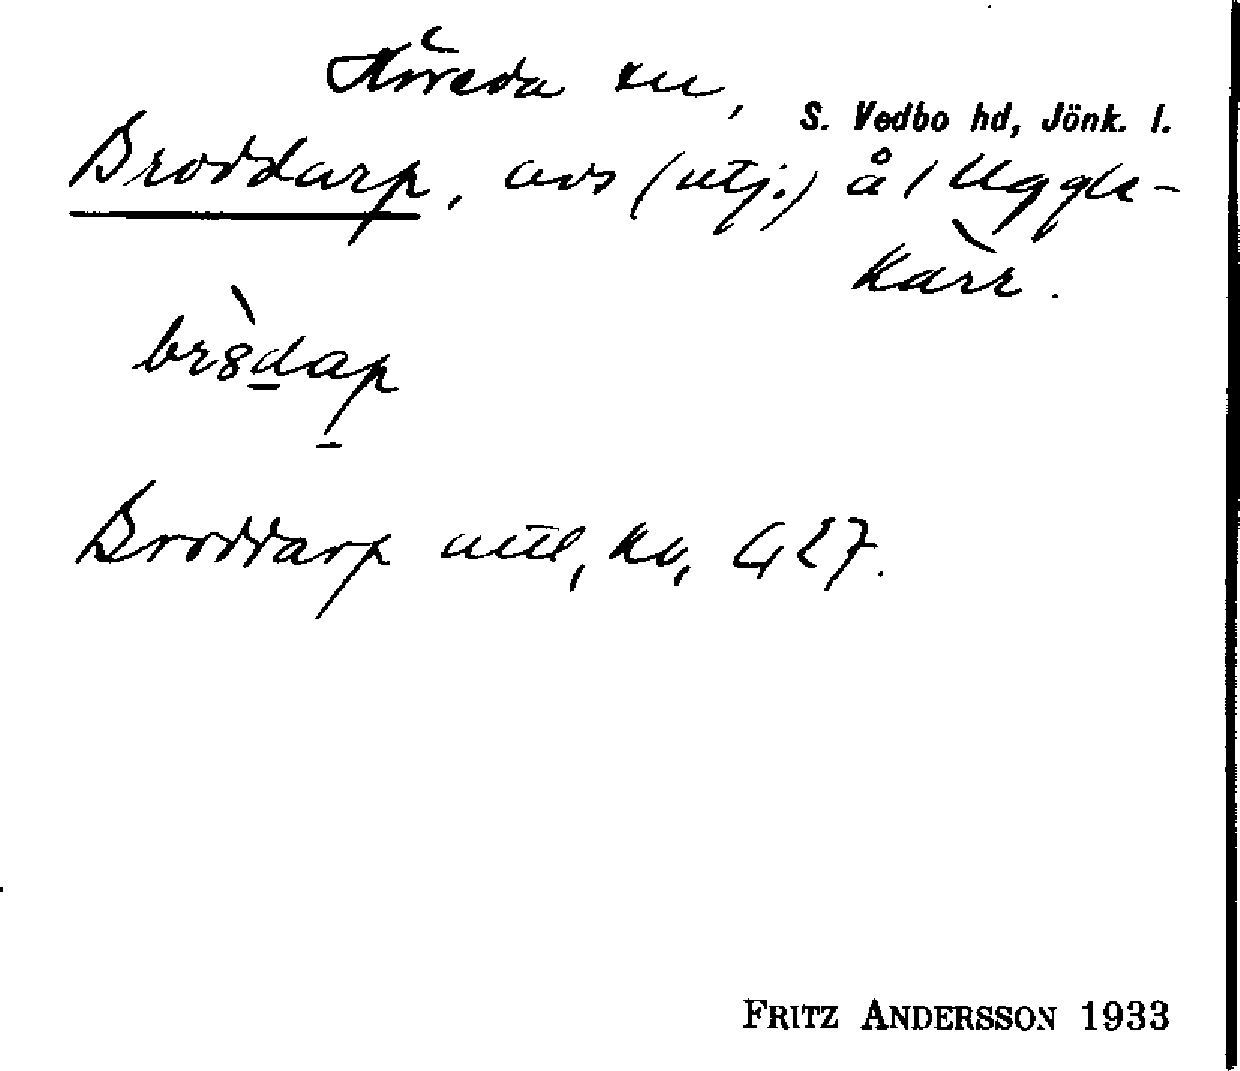 Höreda sn,
S. Vedbo hd, Jönk. l.
Broddarp, avs (utj.) å 1 Uggle-
kärr.
Broddarp utjl, kv, G 27.
FRITZ ANDERSSON 1933